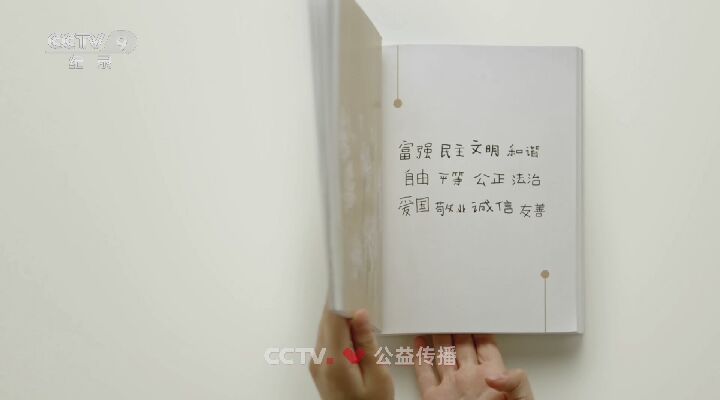 CCTV 9
纪录
富强 民主 文明 和谐
自由 平等 公正 法治
爱国 敬业 诚信 友善
CCTV. 公益传播